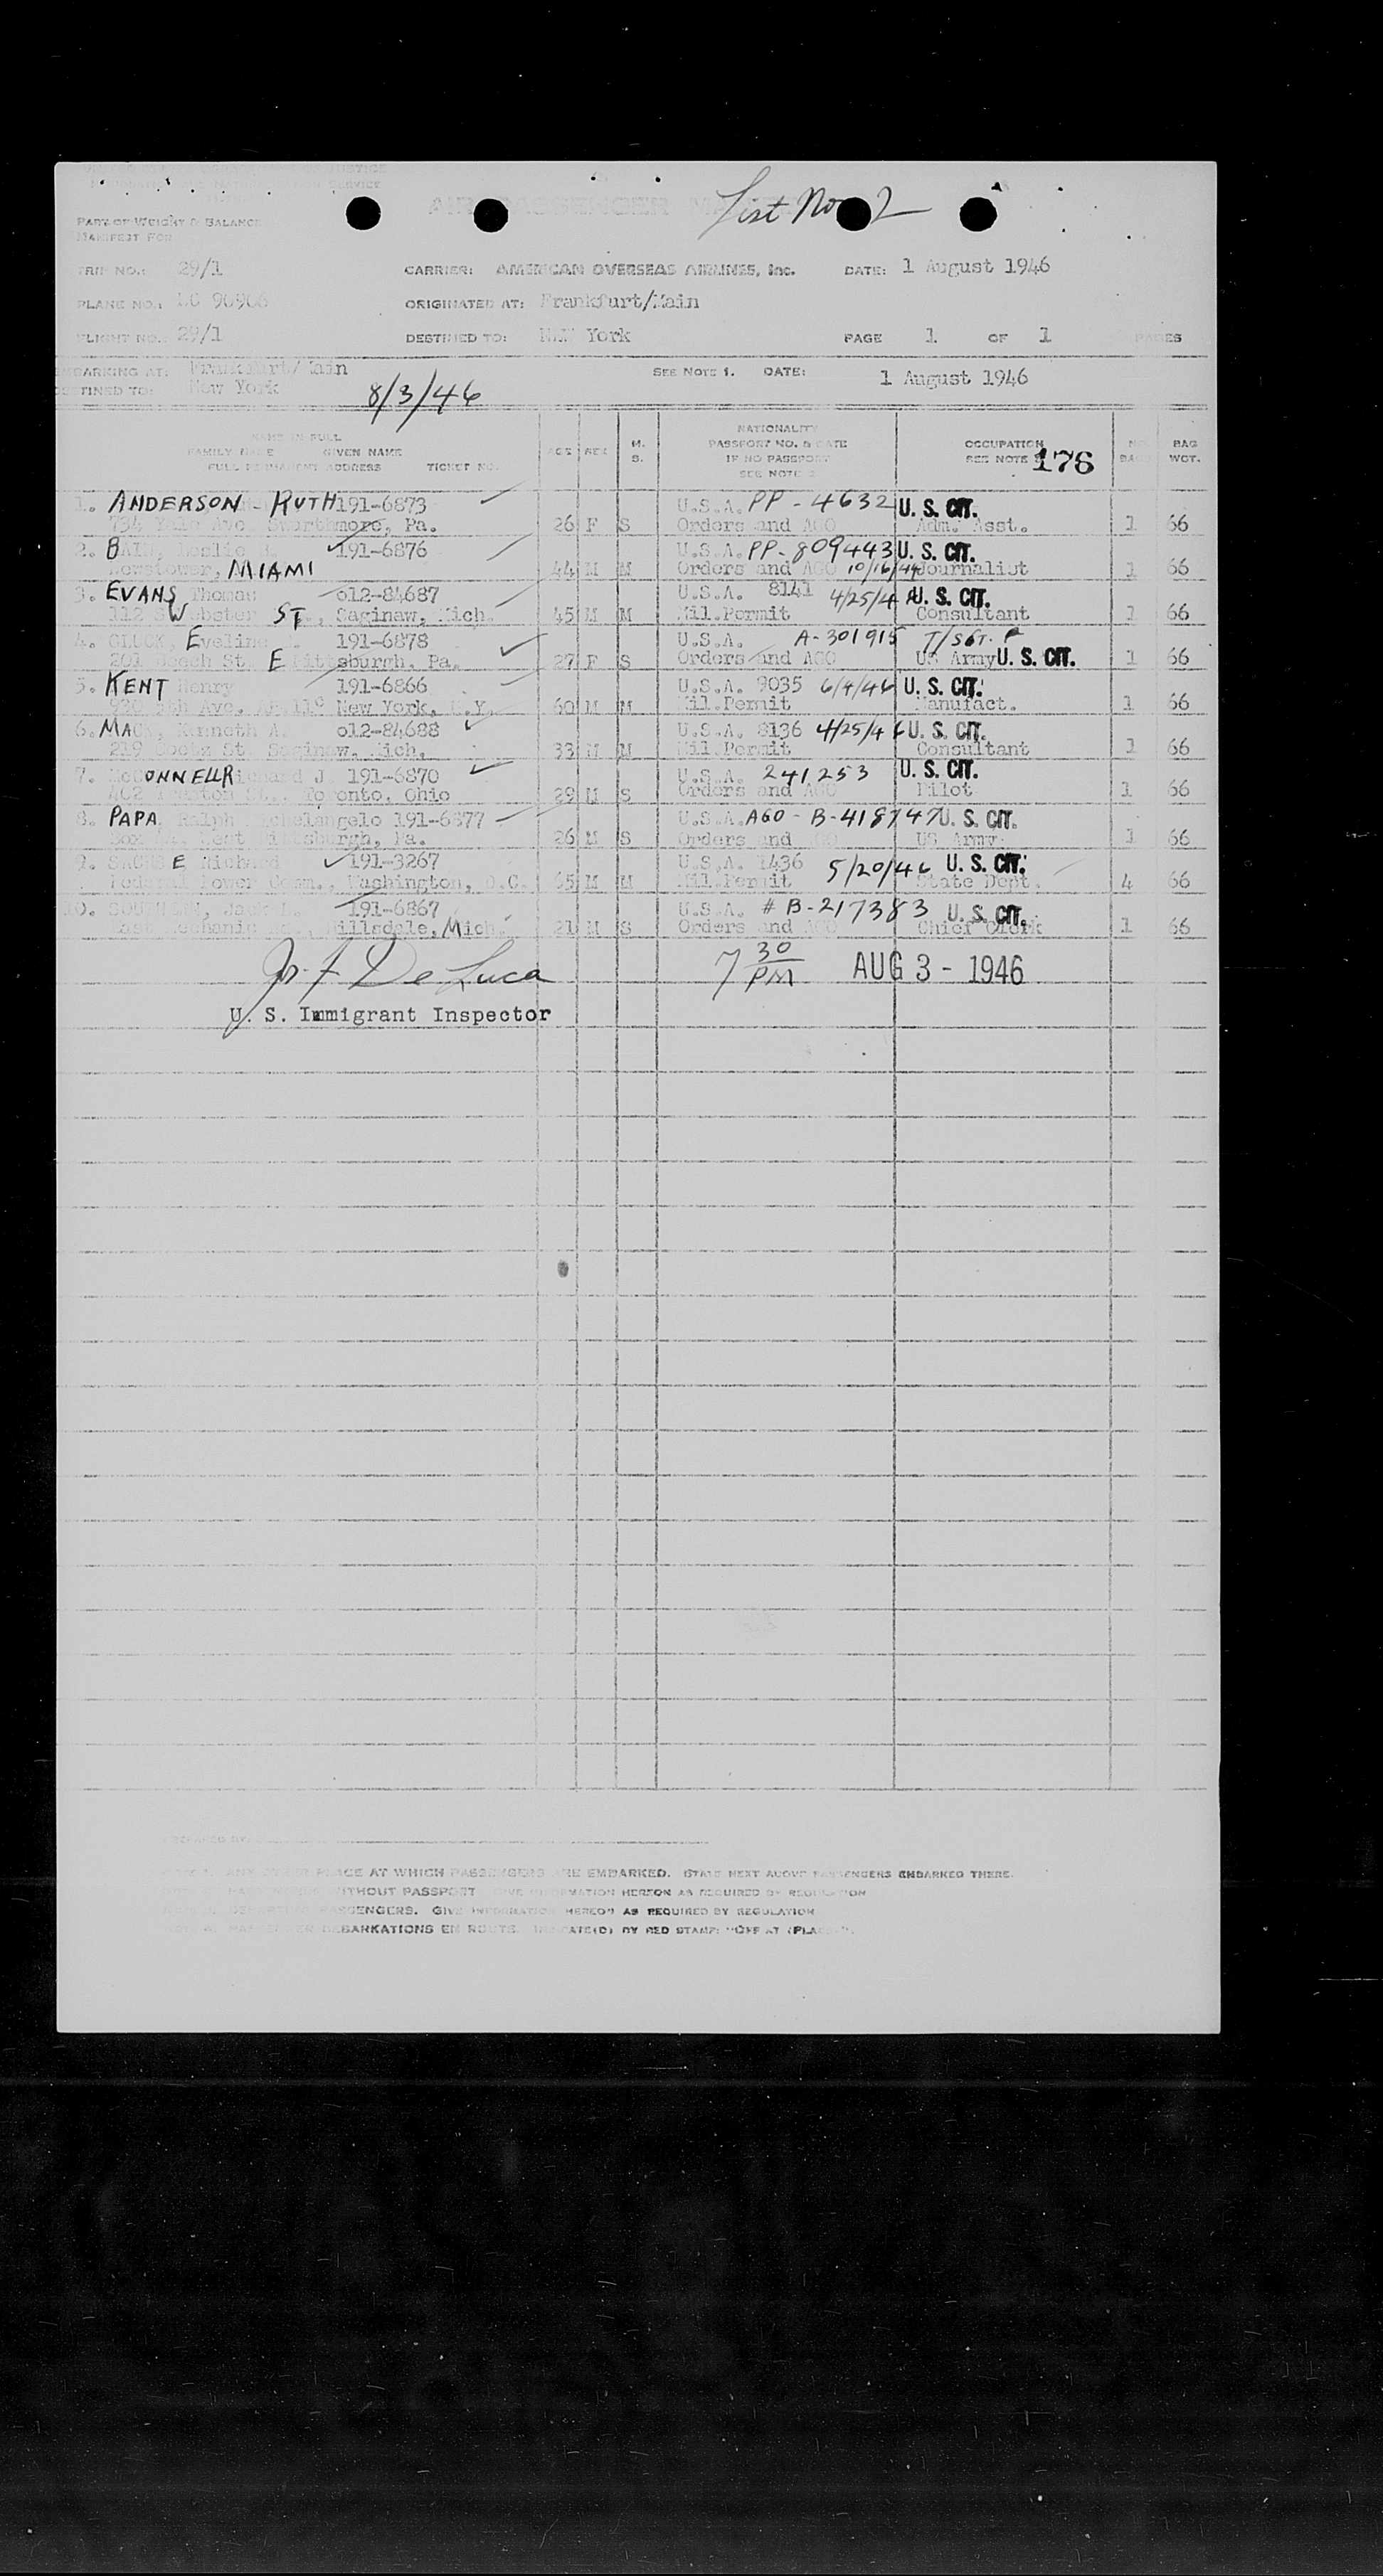 List No 2
PART OF WEIGHT & BALANCE
MANIFEST FOR
TRIP NO.: 29/1 CARRIER: AMERICAN OVERSEAS AIRLINES, Inc. DATE: 1 August 1946
PLANE NO.: NC 90906 ORIGINATED AT: Frankfurt/Main
FLIGHT NO.: 29/1 DESTINED TO: New York PAGE 1 OF 1 PAGES
EMBARKING AT: Frankfurt/Main SEE NOTE 1. DATE: 1 August 1946
DESTINED TO: New York 8/3/46
NAME IN FULL
FAMILY NAME GIVEN NAME
FULL PERMANENT ADDRESS TICKET NO. AGE SEX M. S. NATIONALITY PASSPORT NO. & DATE IF NO PASSPORT SEE NOTE 2 OCCUPATION SEE NOTE 176 NO. BAGS BAG WGT.
1. ANDERSON - RUTH 191-6873 U.S.A. PP - 4632 U. S. CIT.
734 Yale Ave Swarthmore, Pa. 26 F S Orders and AGO Adm. Asst. 1 66
2. BAIN, Leslie 191-6876 U.S.A. PP-809443 U. S. CIT.
Newstower, MIAMI 44 M M Orders and AGO 10/16/44 Journalist 1 66
3. EVANS Thomas 012-84687 U.S.A. 8141 4/25/4 U. S. CIT.
112 S Webster ST., Saginaw, Mich. 45 M M Mil.Permit Consultant 1 66
4. GLUCK, Eveline 191-6878 U.S.A. A-301915 T/SGT. F
201 Beech St. E Pittsburgh, Pa. 27 F S Orders and AGO US Army U. S. CIT. 1 66
5. KENT Henry 191-6866 U.S.A. 9035 6/4/46 U. S. CIT.
930 5th Ave. New York, N.Y. 60 M M Mil.Permit Manufact. 1 66
6. MACK, Kenneth A. 012-84688 U.S.A. 8136 4/25/46 U. S. CIT.
219 Goetz St Saginaw, Mich, 33 M M Mil.Permit Consultant 1 66
7. McCONNELL Richard J 191-6870 U.S.A. 241253 U. S. CIT.
402 Toronto, Ohio 29 M S Orders and AGO Pilot 1 66
8. PAPA, Ralph Michelangelo 191-6877 U.S.A. AGO - B-418747 U. S. CIT.
Box West Pittsburgh, Pa. 26 M S Orders and AGO US Army 1 66
9. SACHSE Richard 191-3267 U.S.A. 1436 5/20/46 U. S. CIT.
Federal Power Com., Washington, D.C. 65 M M Mil.Permit State Dept. 4 66
10. Jack 191-6867 U.S.A. # B-217383 U. S. CIT.
East Mechanic Hillsdale, Mich. 21 M S Orders and AGO Chief Clerk 1 66
De Luca 7 30 PM AUG 3 - 1946
U. S. Immigrant Inspector
PREPARED BY
PLACE AT WHICH PASSENGERS ARE EMBARKED. STATE NEXT ABOVE PASSENGERS EMBARKED THERE.
PASSENGERS WITHOUT PASSPORT GIVE INFORMATION HEREON AS REQUIRED BY REGULATION
PASSENGERS. GIVE INFORMATION HEREON AS REQUIRED BY REGULATION
PASSENGER DEBARKATIONS EN ROUTE. INDICATE(D) BY RED STAMP: "OFF AT (PLACE)".